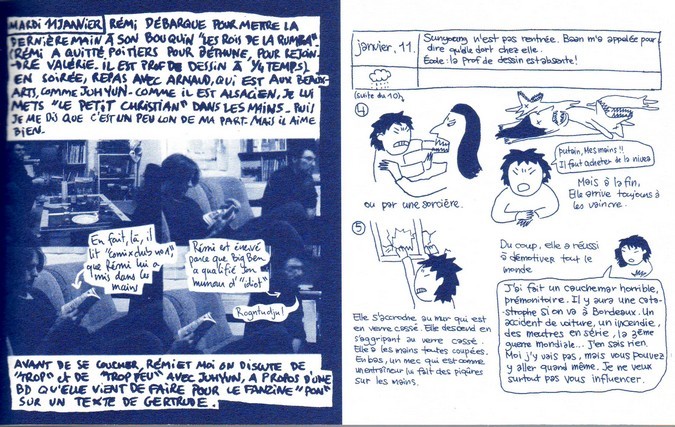 MARDI 11 JANVIER RÉMI DÉBARQUE POUR METTRE LA
DERNIÈRE MAIN À SON BOUQUIN "LES ROIS DE LA RUMBA".
(RÉMI A QUITTÉ POITIERS POUR BÉTHUNE, POUR REJOIN-
-DRE VALÉRIE. IL EST PROF DE DESSIN À 3/4 TEMPS).
EN SOIRÉE, REPAS AVEC ARNAUD, QUI EST AUX BEAUX-
ARTS, COMME JUHYUN. COMME IL EST ALSACIEN, JE LUI
METS "LE PETIT CHRISTIAN" DANS LES MAINS - PUIS
JE ME DIS QUE C'EST UN PEU CON DE MA PART. MAIS IL AIME
BIEN.
En fait, là, il
lit "comix club no 1",
que Rémi lui a
mis dans les
mains
Rémi est énervé
parce que Big Ben
a qualifié son
humour d'"idiot"
Rogntudju!
AVANT DE SE COUCHER, RÉMI ET MOI ON DISCUTE DE
"TROP" ET DE "TROP PEU" AVEC JUHYUN, A PROPOS D'UNE
BD QU'ELLE VIENT DE FAIRE POUR LE FANZINE "PON"
SUR UN TEXTE DE GERTRUDE.
janvier, 11.
Sunyoung n'est pas rentrée. Baan m'a appelée pour
dire qu'elle dort chez elle.
École : la prof de dessin est absente!
(suite du 10)
④
ou par une sorcière.
putain, Mes mains!!
Il faut acheter de la nivea
Mais à la fin,
Elle arrive toujours à
les vaincre.
⑤
Elle s'accroche au mur qui est
en verre cassé. Elle descend en
s'agrippant au verre cassé.
Elle a les mains toutes coupées.
En bas, un mec qui est comme
un entraîneur lui fait des piqûres
sur les mains.
Du coup, elle a réussi
à démotiver tout le
monde
J'ai fait un cauchemar horrible,
prémonitoire. Il y aura une cata-
strophe si on va à Bordeaux. Un
accident de voiture, un incendie,
des meurtres en série, la 3ème
guerre mondiale... J'en sais rien.
Moi j'y vais pas, mais vous pouvez
y aller quand même. Je ne veux
surtout pas vous influencer.